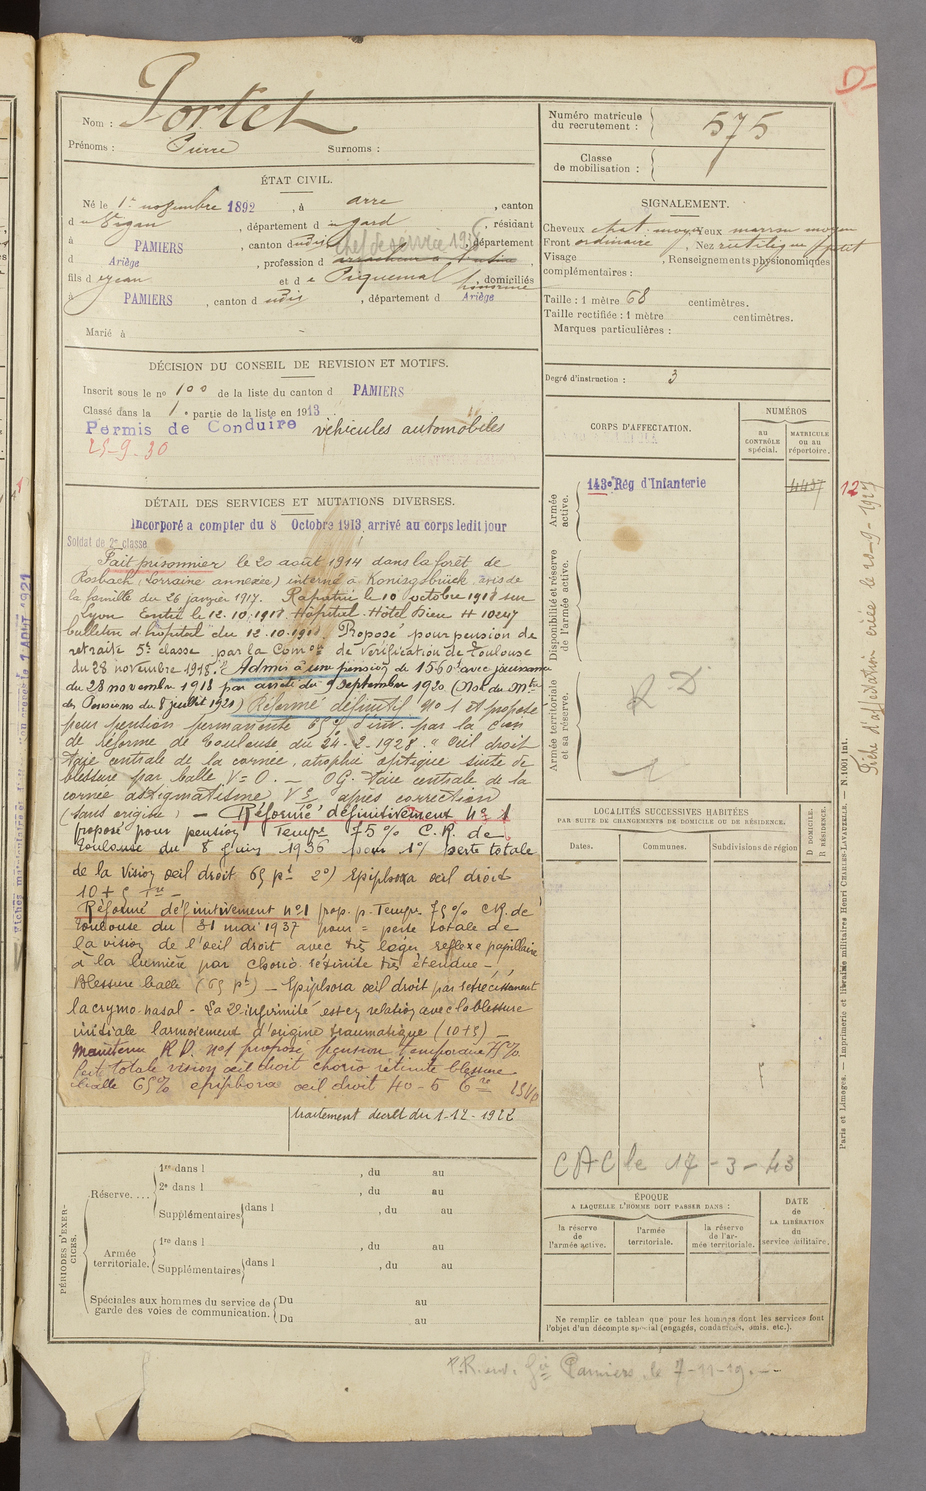 D
Nom : Portet
Prénoms : Pierre Surnoms :
Numéro matricule du recrutement : 575
Classe de mobilisation :
ÉTAT CIVIL.
Né le 1er novembre 1892, à arre, canton
d u Vigan, département d u gard, résidant
à PAMIERS, canton d udit chef de service, département
d Ariège, profession d
fils d e Jean et d e Piquemal, domiciliés
à PAMIERS, canton d udit, département d Ariège
Marié à
SIGNALEMENT.
Cheveux chat. moyen Yeux marron moyen
Front ordinaire, Nez rectiligne petit
Visage , Renseignements physionomiques
complémentaires :
Taille : 1 mètre 68 centimètres.
Taille rectifiée : 1 mètre centimètres.
Marques particulières :
Degré d'instruction : 3
DÉCISION DU CONSEIL DE REVISION ET MOTIFS.
Inscrit sous le no 100 de la liste du canton d PAMIERS
Classé dans la 1e partie de la liste en 1913
Permis de Conduire véhicules automobiles
25-9-30
DÉTAIL DES SERVICES ET MUTATIONS DIVERSES.
Incorporé a compter du 8 Octobre 1913, arrivé au corps ledit jour
Soldat de 2e classe
Fait prisonnier le 20 août 1914 dans la forêt de
Rosbach (Lorraine annexée) interné à Konisgsbrück avis de
la famille du 26 janvier 1917. Rapatrié le 10 octobre 1918 sur
Lyon Entré le 12.10.1918 Hôpital Hôtel Dieu H 10247
bulletin d'hôpital du 12.10.1918. Proposé pour pension de
retraite 5e classe par la Comon de Vérification de Toulouse
du 28 novembre 1918. Admis à une pension de 1560f avec jouissance
du 28 novembre 1918 par arrêté du 9 septembre 1920 (Not. du Mtre
des Pensions du 8 juillet 1921) Réformé définitif No 1 et proposé
pour pension permanente 65% d'inv. par la Cion
de réforme de Toulouse du 24-2-1928. "Oeil droit
taie centrale de la cornée, atrophie optique suite de
blessure par balle V=0. — OG. taie centrale de la
cornée astigmatisme après correction
(sans origine) — Réformé définitivement No 1
proposé pour pension Tempre 75% C.R. de
Toulouse du 8 Juin 1936 pour 1°/ perte totale
de la vision oeil droit 65 pt 2°) Epiphora oeil droit
10+5
Réformé définitivement no1 prop. p. Tempre 75% CR. de
Toulouse du 31 mai 1937 pour = perte totale de
la vision de l'oeil droit avec très léger réflexe papillaire
à la lumière par chorio-rétinite très étendue —
Blessure balle (65 pt) — Epiphora oeil droit par rétrécissement
lacrymo-nasal - La 2e infirmité est en relation avec la blessure
initiale larmoiement d'origine traumatique (10+5) —
Maintenu R.D. no1 proposé pension temporaire 75%
Perte totale vision oeil droit chorio rétinite blessure
balle 65% epiphora oeil droit
traitement décret du 1-12-1922
CORPS D'AFFECTATION.
NUMÉROS
au CONTRÔLE spécial.
MATRICULE ou au répertoire.
Armée active.
143e Rég d'Infanterie 4437
12
Disponibilité et réserve de l'armée active.
Armée territoriale et sa réserve.
R.D
1
Fiche d'affectation créée le 20-9-1927
LOCALITÉS SUCCESSIVES HABITÉES
PAR SUITE DE CHANGEMENTS DE DOMICILE OU DE RÉSIDENCE.
Dates. Communes. Subdivisions de région
D DOMICILE. R RÉSIDENCE.
CAC le 17-3-43
ÉPOQUE
A LAQUELLE L'HOMME DOIT PASSER DANS :
la réserve de l'armée active.
l'armée territoriale.
la réserve de l'armée territoriale.
DATE de LA LIBÉRATION du service militaire.
Ne remplir ce tableau que pour les hommes dont les services font
l'objet d'un décompte spécial (engagés, condamnés, omis, etc.).
PÉRIODES D'EXERCICES.
Réserve....
1re dans l , du au
2e dans l , du au
Supplémentaires dans l , du au
Armée territoriale.
1re dans l , du au
Supplémentaires dans l , du au
Spéciales aux hommes du service de garde des voies de communication.
Du au
Du au
Paris et Limoges. — Imprimerie et librairie militaires Henri CHARLES-LAVAUZELLE. — N. 1001 int.
Pamiers, le 7-11-19.